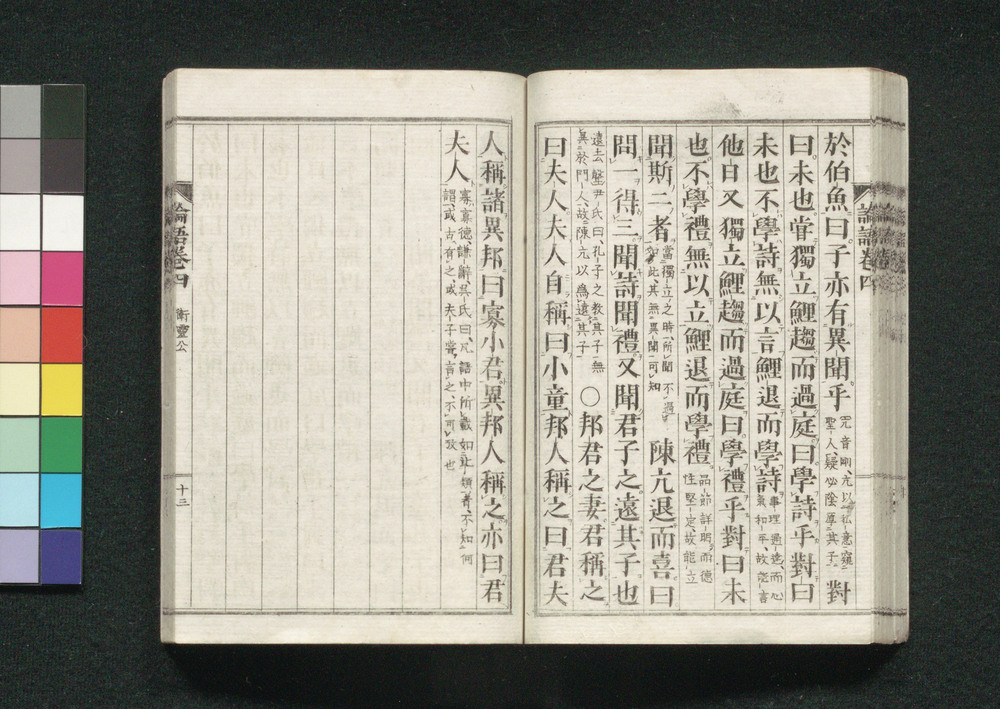 論語卷四
於伯魚曰子亦有異聞乎 亢音剛亢以私意窺聖人疑必陰厚其子 對
曰未也嘗獨立鯉趨而過庭曰學詩乎對曰
未也不學詩無以言鯉退而學詩 事理通達而心氣和平故能言
他日又獨立鯉趨而過庭曰學禮乎對曰未
也不學禮無以立鯉退而學禮 品節詳明而德性堅定故能立
聞斯二者 當獨立之時所聞不過如此其無異聞可知 陳亢退而喜曰
問一得三聞詩聞禮又聞君子之遠其子也
遠去聲尹氏曰孔子之教其子無異於門人故陳亢以為遠其子 ○邦君之妻君稱之
曰夫人夫人自稱曰小童邦人稱之曰君夫
人稱諸異邦曰寡小君異邦人稱之亦曰君
夫人 寡寡德謙辭吳氏曰凡語中所載如此類者不知何謂或古有之或夫子嘗言之不可攷也
論語卷四 衛靈公 十三